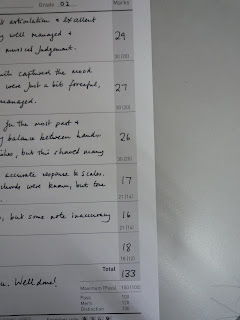 Grade 02
Marks
articulation & excellent
well managed &
musical judgement.
29
30 (20)
captured the mood
were just a bit forceful,
managed.
27
30 (20)
for the most part &
balance between hands.
, but this showed many
26
30 (20)
accurate response to scales.
chords were known, but tone
17
21 (14)
, but some note inaccuracy
16
21 (14)
18
18 (12)
Well done!
Total
133
Maximum (Pass) 150 (100)
Pass 100
Merit 120
Distinction 130